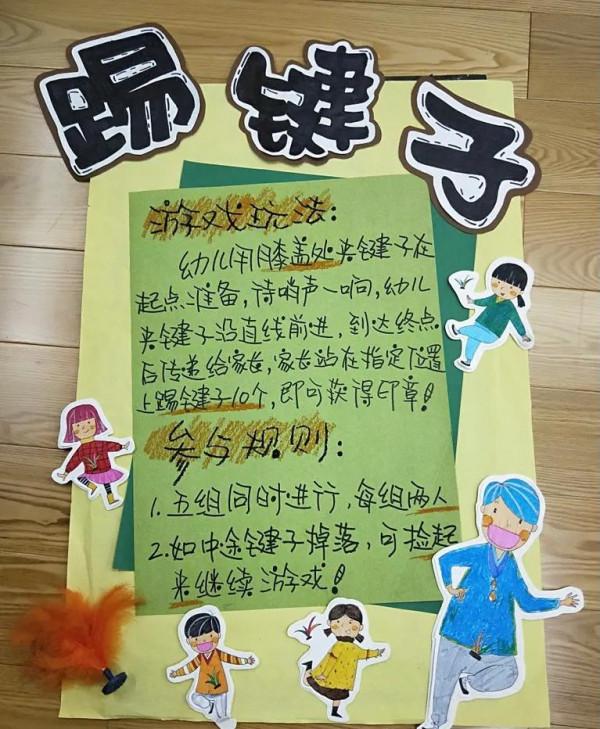 踢键子
游戏玩法:
幼儿用膝盖处夹键子在
起点准备,待哨声一响,幼儿
夹键子沿直线前进,到达终点
后传递给家长,家长站在指定位置
上踢键子10个,即可获得印章!
参与规则:
1.五组同时进行,每组两人
2.如中途键子掉落,可捡起
来继续游戏!